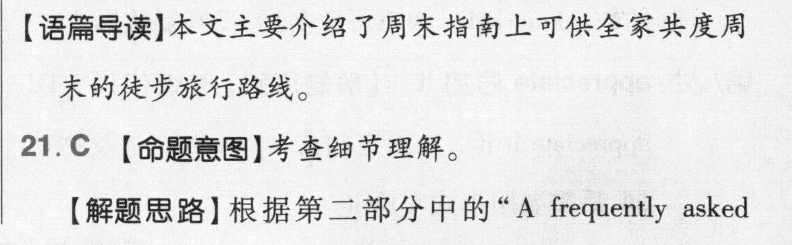 【语篇导读】本文主要介绍了周末指南上可供全家共度周
末的徒步旅行路线。
21. C 【命题意图】考查细节理解。
【解题思路】根据第二部分中的“A frequently asked